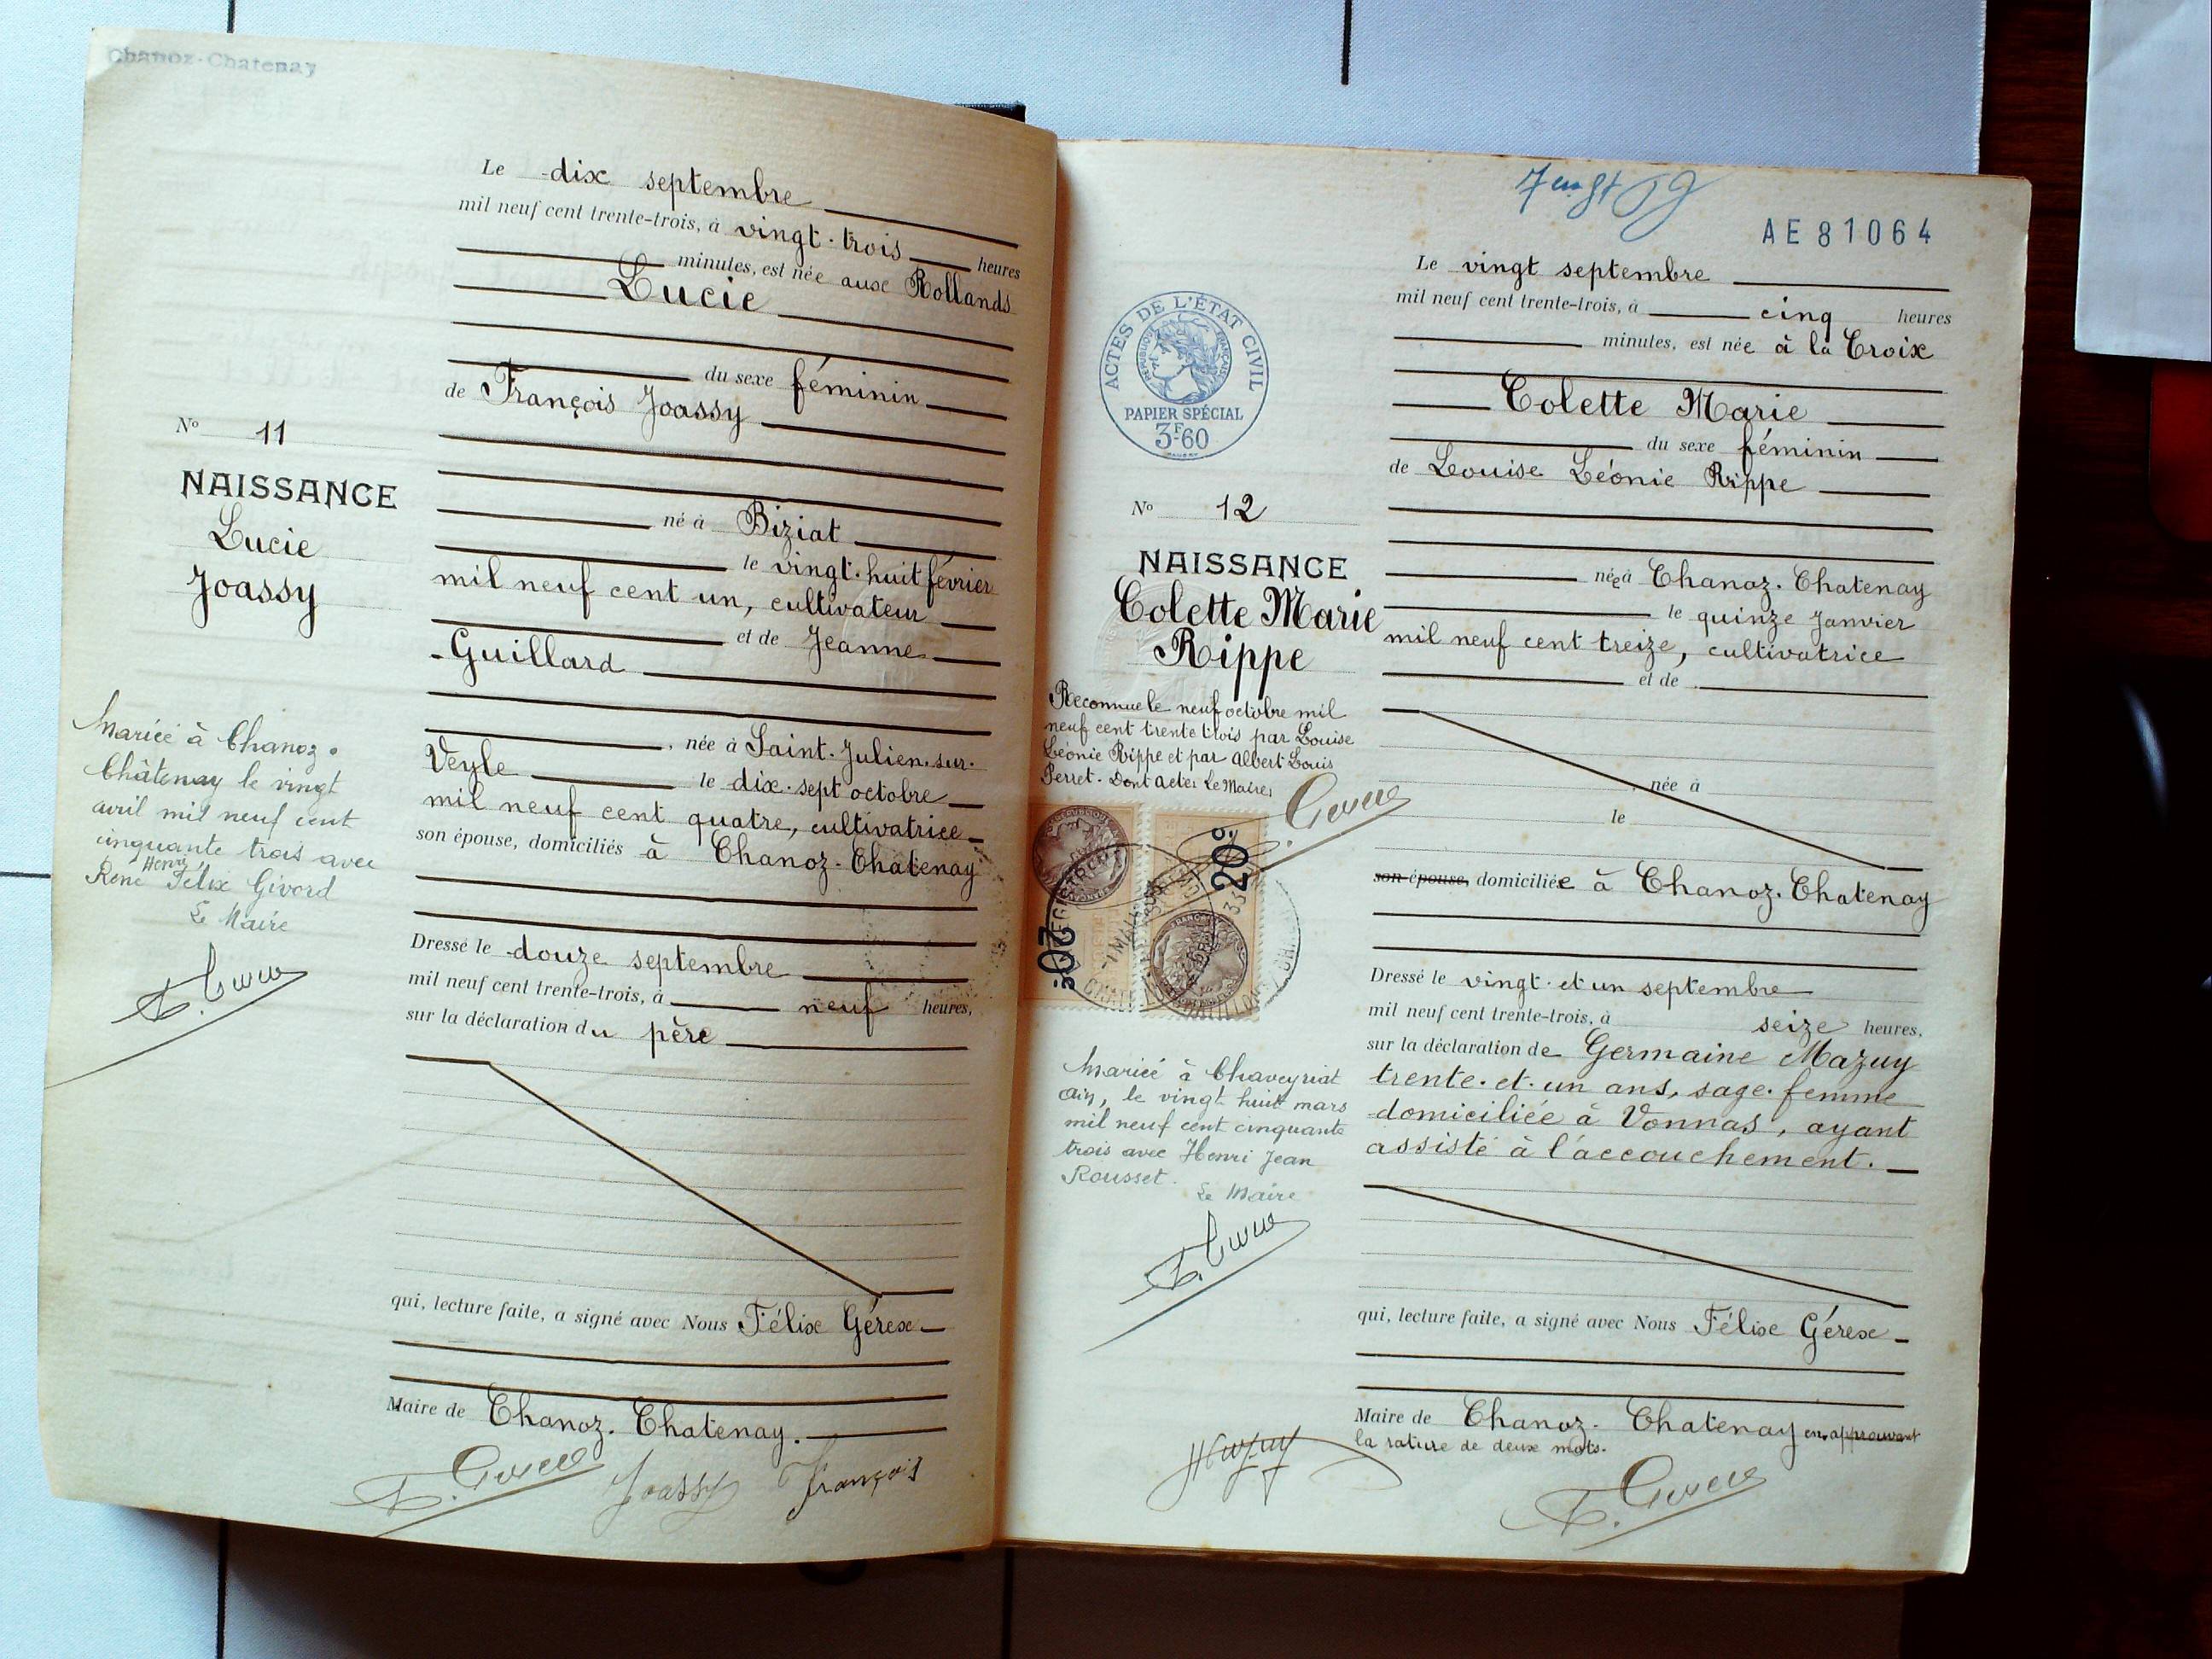 Chanoz-Chatenay
Le dix septembre
mil neuf cent trente-trois, à vingt-trois heures
minutes, est née aux Rollands
Lucie
du sexe féminin
de François Joassy
né à Biziat
le vingt-huit février
mil neuf cent un, cultivateur
et de Jeanne
Guillard
, née à Saint-Julien-sur-
Veyle le dix-sept octobre
mil neuf cent quatre, cultivatrice
son épouse, domiciliés à Chanoz-Chatenay
Dressé le douze septembre
mil neuf cent trente-trois, à neuf heures,
sur la déclaration du père
qui, lecture faite, a signé avec Nous Félix Gérex
Maire de Chanoz-Chatenay.
Joassy François
No 11
NAISSANCE
Lucie
Joassy
Mariée à Chanoz-
Châtenay le vingt
avril mil neuf cent
cinquante trois avec
Henri
René Félix Givord
Le Maire
AE81064
ACTES DE L'ÉTAT CIVIL
RÉPUBLIQUE FRANÇAISE
PAPIER SPÉCIAL
3F60
No 12
NAISSANCE
Colette Marie
Rippe
Reconnue le neuf octobre mil
neuf cent trente trois par Louise
Léonie Rippe et par Albert Louis
Perret. Dont acte. Le Maire,
20c
20c
Mariée à Chaveyriat
Ain, le vingt huit mars
mil neuf cent cinquante
trois avec Henri Jean
Rousset.
Le Maire
Le vingt septembre
mil neuf cent trente-trois, à cinq heures
minutes, est née à la Croix
Colette Marie
du sexe féminin
de Louise Léonie Rippe
née à Chanoz-Chatenay
le quinze Janvier
mil neuf cent treize, cultivatrice
et de
, née à
le
son épouse, domiciliée à Chanoz-Chatenay
Dressé le vingt-et-un septembre
mil neuf cent trente-trois, à seize heures,
sur la déclaration de Germaine Mazuy
trente-et-un ans, sage-femme
domiciliée à Vonnas, ayant
assisté à l'accouchement.
qui, lecture faite, a signé avec Nous Félix Gérex
Maire de Chanoz-Chatenay en approuvant
la rature de deux mots.
Mazuy